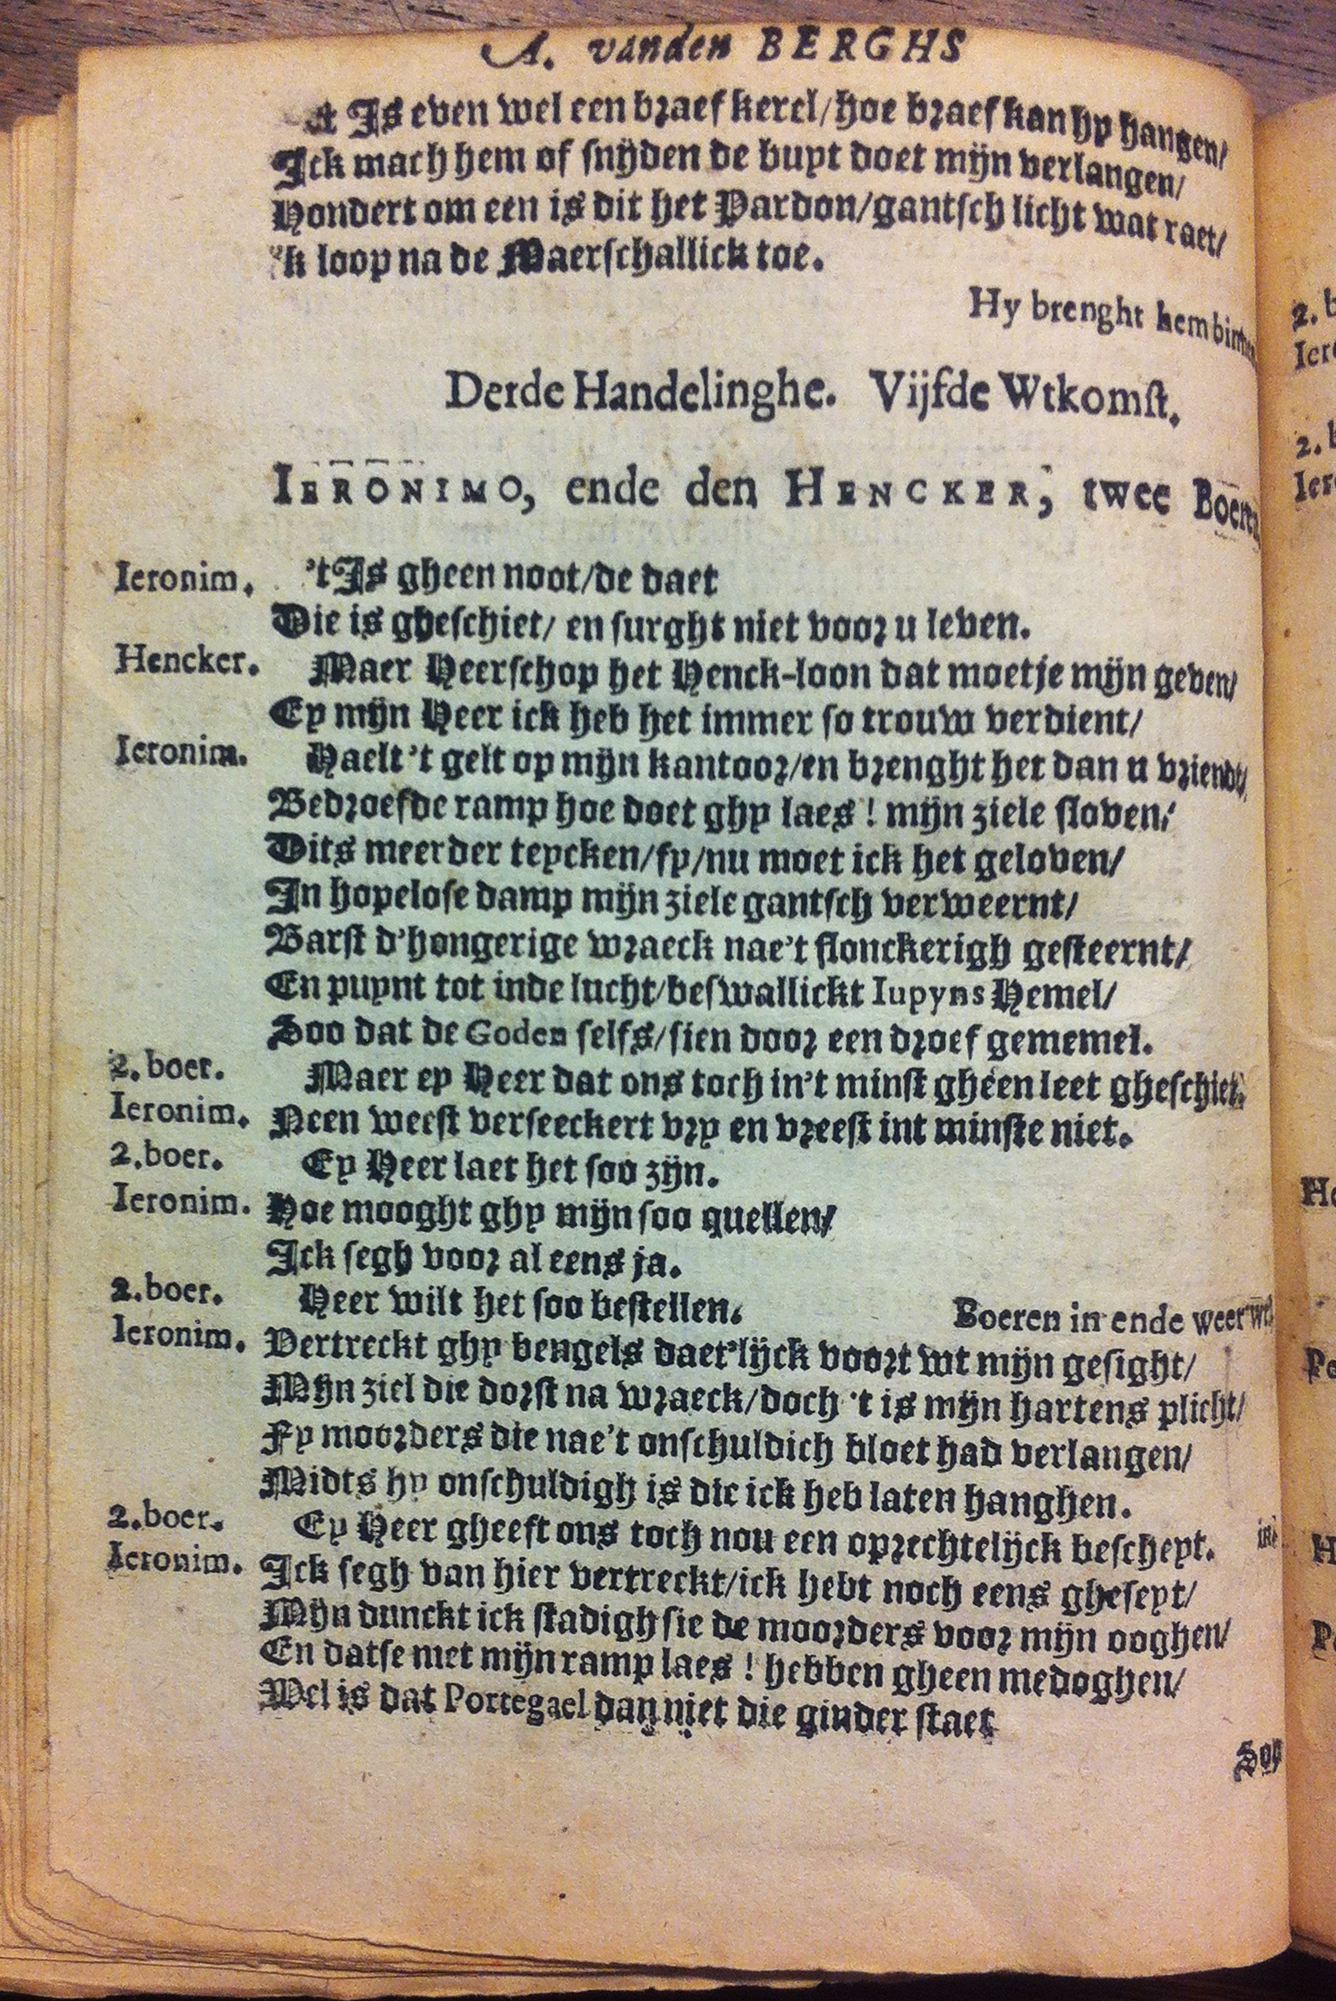 A. vanden BERGHS
't Is even wel een braef kerel/hoe braef kan hy hangen/
Ick mach hem of snyden de buyt doet mijn verlangen/
Hondert om een is dit het Pardon/gantsch licht wat raet/
'k loop na de Maerschallick toe.
Hy brenght hem binnen
Derde Handelinghe. Vijfde Wtkomst.
IERONIMO, ende den HENCKER, twee Boeren
Ieronim. 'tIs gheen noot/de daet
Die is gheschiet/ en surght niet voor u leven.
Hencker. Maer Heerschop het Henck-loon dat moetje mijn geven/
Ey mijn Heer ick heb het immer so trouw verdient/
Ieronim. Haelt 't gelt op mijn kantoor/en brenght het dan u vriendt/
Bedroefde ramp hoe doet ghy laes ! mijn ziele sloven/
Dits meerder teycken/fy/nu moet ick het geloven/
In hopelose damp mijn ziele gantsch verweernt/
Barst d'hongerige wraeck nae't flonckerigh gesteernt/
En puynt tot inde lucht/beswallickt Iupyns Hemel/
Soo dat de Goden selfs/sien door een droef gememel.
2. boer. Maer ey Heer dat ons toch in't minst gheen leet gheschiet.
Ieronim. Neen weest verseeckert vry en vreest int minste niet.
2. boer. Ey Heer laet het soo zijn.
Ieronim. Hoe mooght ghy mijn soo quellen/
Ick segh voor al eens ja.
2. boer. Heer wilt het soo bestellen. Boeren in ende weer
Ieronim. Vertreckt ghy bengels daet'lijck voort wt mijn gesight/
Mijn ziel die dorst na wraeck/doch 't is mijn hartens plicht/
Fy moorders die nae't onschuldich bloet had verlangen/
Midts hy onschuldigh is die ick heb laten hanghen.
2. boer. Ey Heer gheeft ons toch nou een oprechtelijck bescheyt.
Ieronim. Ick segh van hier vertreckt/ick hebt noch eens gheseyt/
Mijn dunckt ick stadigh sie de moorders voor mijn ooghen/
En datse met mijn ramp laes ! hebben gheen medoghen/
Wel is dat Portegael dan niet die ginder staet
Soo